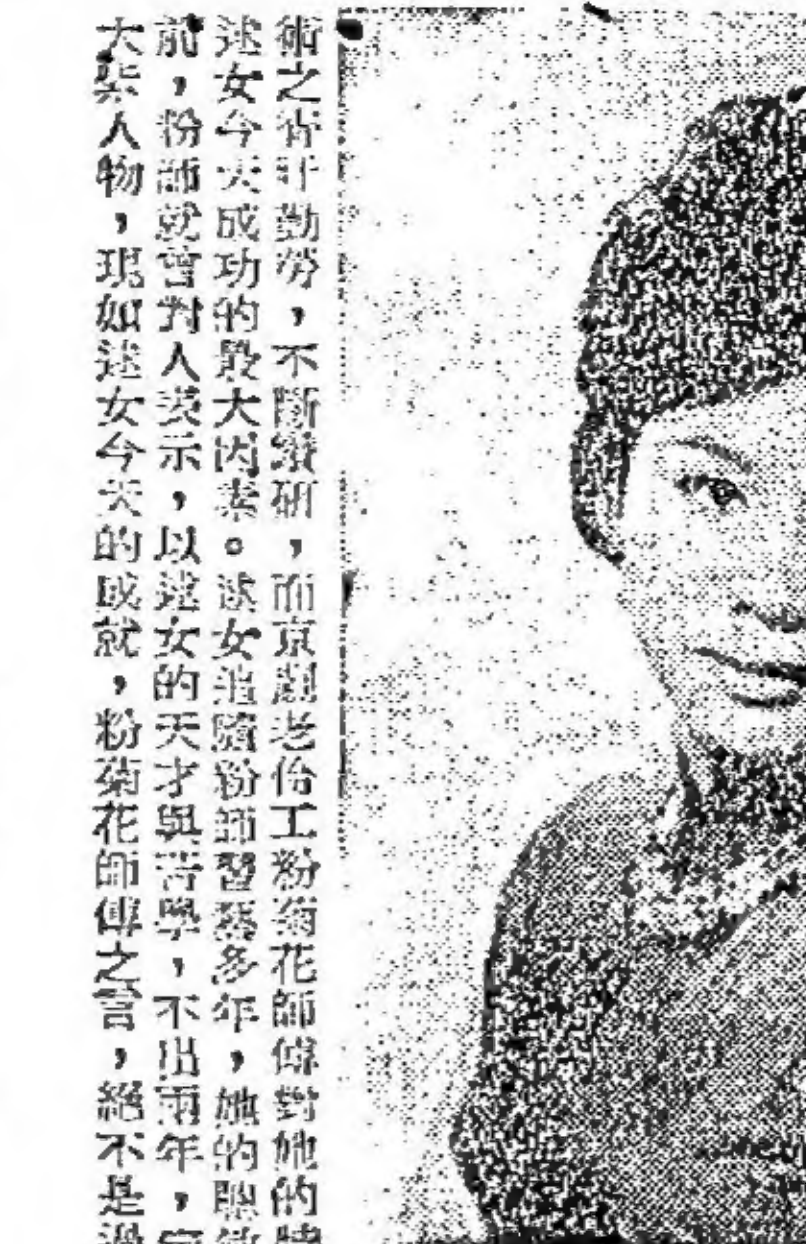 術之勤勞，不斷鑽研，而京劇老伶工粉菊花師傅對她的
迷女今天成功的最大因素。迷女追隨粉師習藝多年，她的聰
前，粉師就曾對人表示，以迷女的天才與苦學，不出兩年，
大紫人物，現如迷女今天的成就，粉菊花師傅之言，絕不是